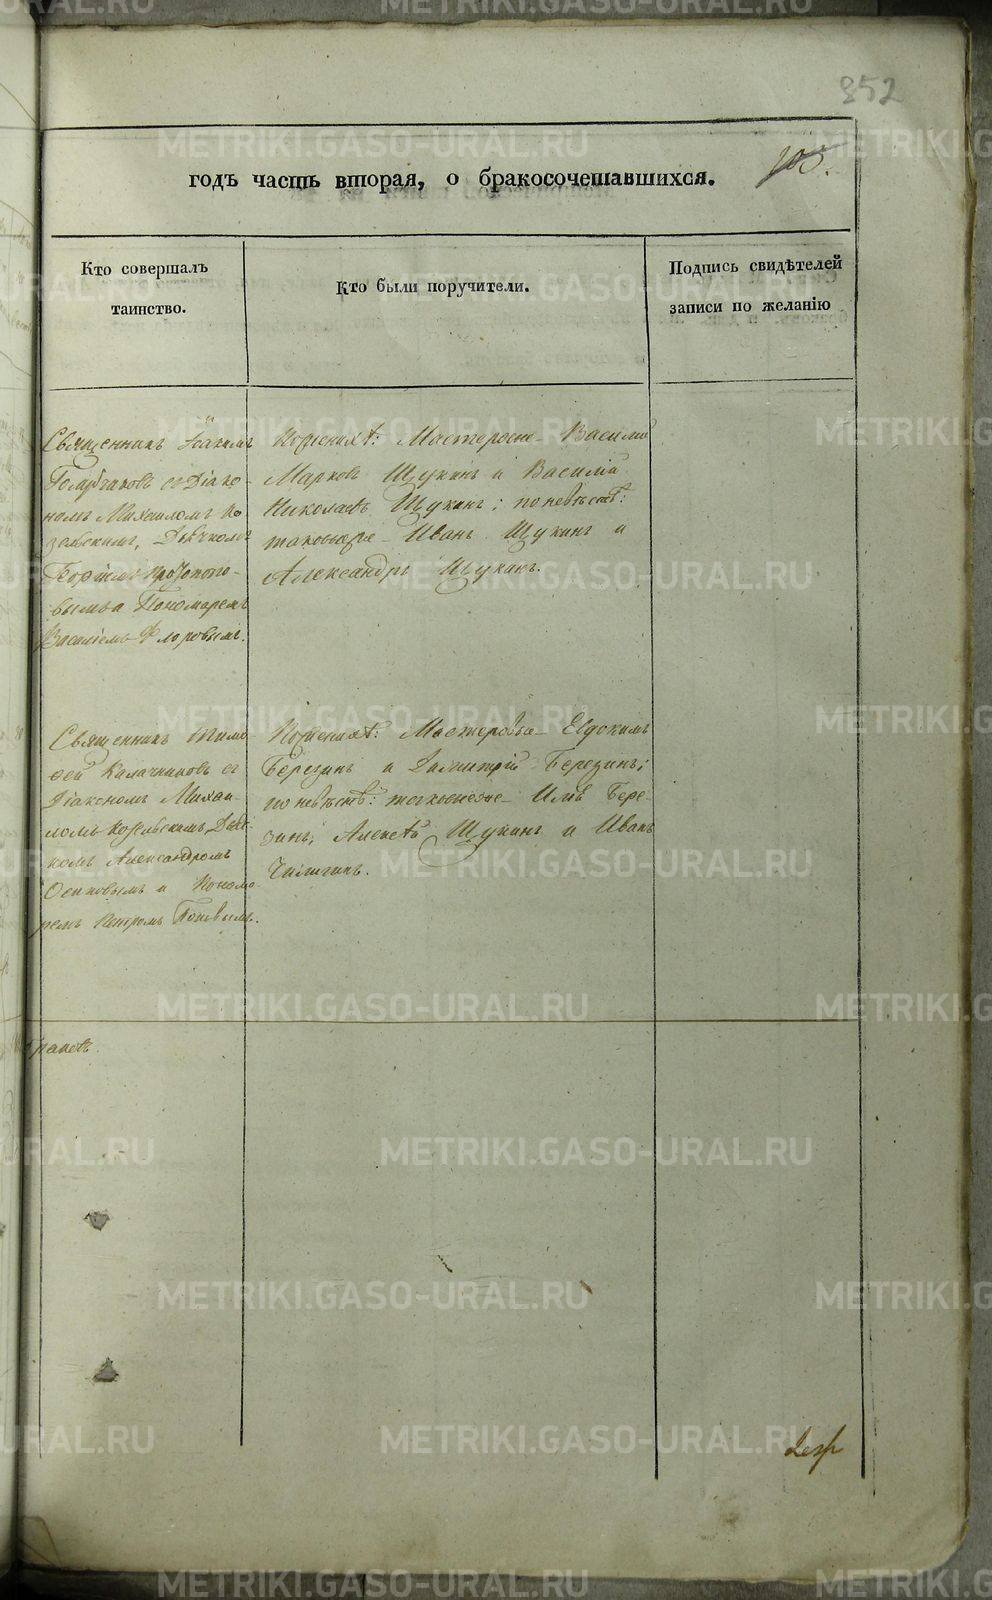 852
105.
годъ часть вторая, о бракосочетавшихся.
Кто совершалъ
таинство.
Кто были поручители.
Подпись свидѣтелей
записи по желанію
Священникъ Іоакимъ
съ Діако-
номъ Михаиломъ Ко
зельскимъ, Дьячкомъ
Протопопо-
вымъ и Пономаремъ
Василіемъ Флоровымъ.
По женихѣ: Мастеровые Василій
Марковъ Щукинъ и Василій
Николаевъ Щукинъ; по невѣстѣ:
таковыеже Иванъ Щукинъ и
Александръ Щукинъ.
Священникъ Тимо
фей Калачниковъ съ
Діакономъ Михаи
ломъ Козельскимъ, Дьяч
комъ Александромъ
Осиповымъ и Понома
ремъ Петромъ
По женихѣ: Мастеровые Евдокимъ
Березинъ и Березинъ;
по невѣстѣ: таковыеже Бере
зинъ, Алексѣй Щукинъ и Иванъ
бракъ
METRIKI.GASO-URAL.RU